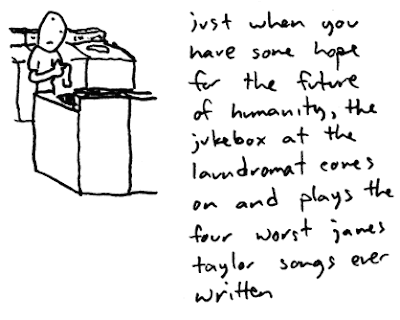 just when you
have some hope
for the future
of humanity, the
jukebox at the
laundromat comes
on and plays the
four worst james
taylor songs ever
written